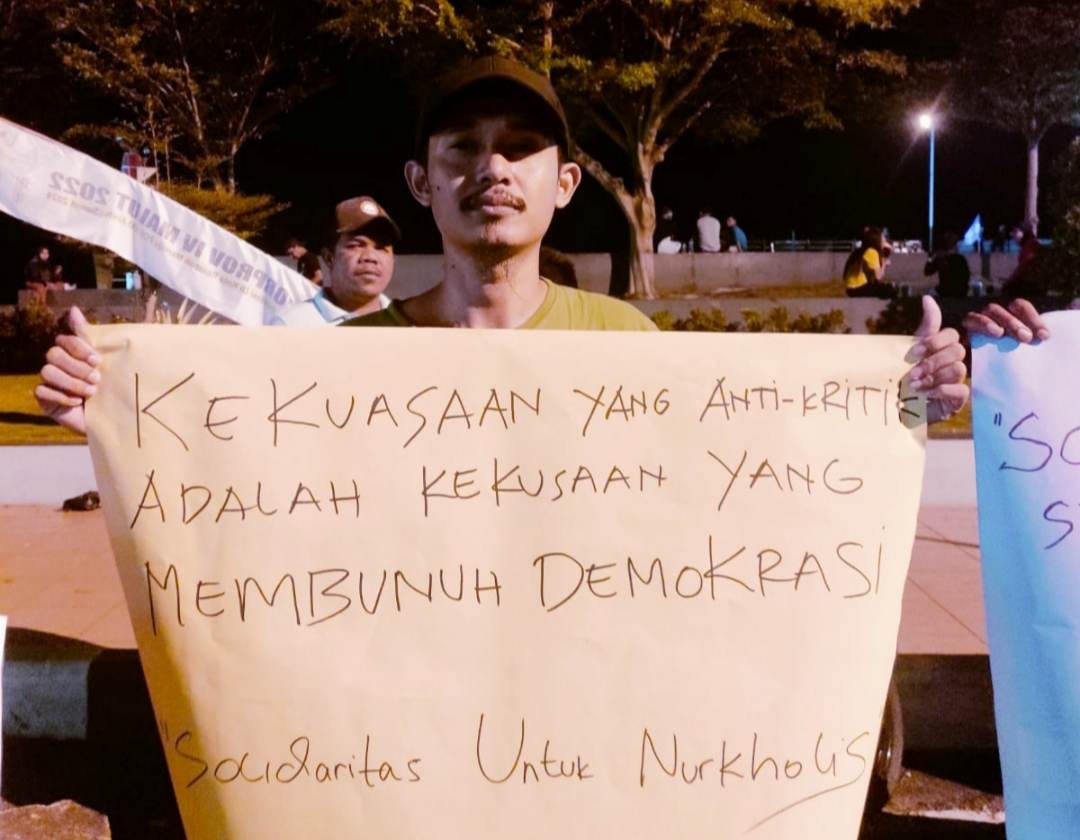 KEKUASAAN YANG ANTI-KRITIK
ADALAH KEKUSAAN YANG
MEMBUNUH DEMOKRASI
"Solidaritas Untuk Nurkholis
"SO
S
PORPROV IV MALUT 2022